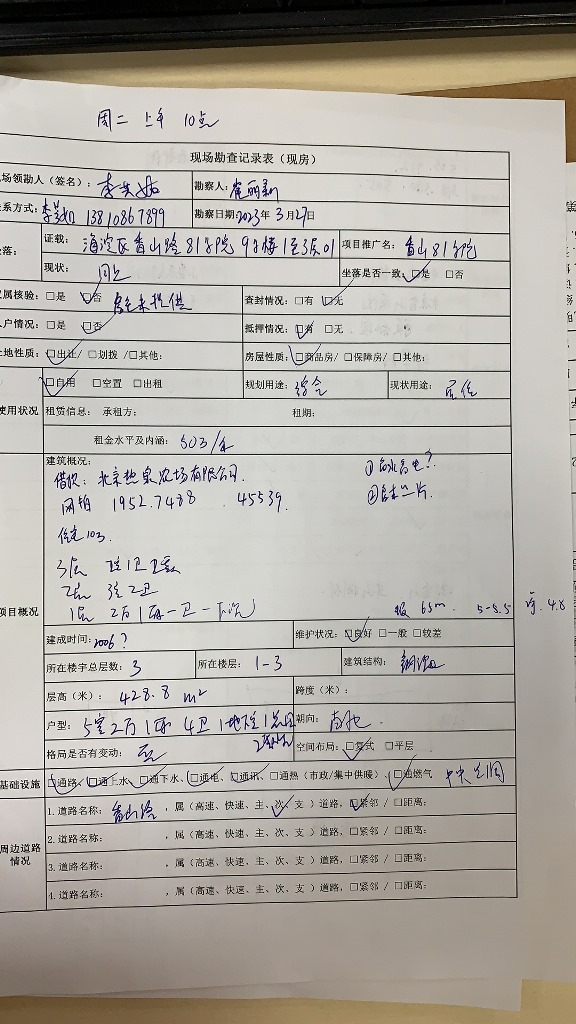 周二 上午 10点
现场勘查记录表（现房）
场领勘人（签名）： 勘察人：
系方式： 13810867899 勘察日期：2023年 3月27日
落： 证载：海淀区香山路81号院 9号楼1至3层01 项目推广名：香山81号院
现状：同上 坐落是否一致：☑是 □否
属核验：□是 ☑否 未提供 查封情况：□有 ☑无
户情况：□是 ☑否 抵押情况：☑有 □无
地性质：☑出让/ □划拨 /□其他： 房屋性质：☑商品房/ □保障房/ □其他：
使用状况 ☑自用 □空置 □出租 规划用途：综合 现状用途：居住
租赁信息： 承租方： 租期：
租金水平及内涵：503/
建筑概况：
借款：北京热泉农场有限公司. ①
网拍 1952.7488 . 45539 ②
住宅103.
3层
2层 3室2卫
1层 2厅1厨一卫一
报 65m. 5-5.5 4.8
项目概况
建成时间：2006？ 维护状况：☑良好 □一般 □较差
所在楼宇总层数：3 所在楼层：1-3 建筑结构：钢混
层高（米）：428.8 m² 跨度（米）：
户型：5室2厅1厨4卫1地下室 朝向：南北
格局是否有变动：无 空间布局：☑复式 □平层
基础设施 ☑通路、☑通上水、☑通下水、☑通电、☑通讯、□通热（市政/集中供暖）☑通燃气 中央空调
周边道路情况 1.道路名称：香山路 ，属（高速、快速、主、次、支 ）道路，☑紧邻 / □距离：
2.道路名称： ，属（高速、快速、主、次、支 ）道路，□紧邻 / □距离：
3.道路名称： ，属（高速、快速、主、次、支 ）道路，□紧邻 / □距离：
4.道路名称： ，属（高速、快速、主、次、支 ）道路，□紧邻 / □距离：